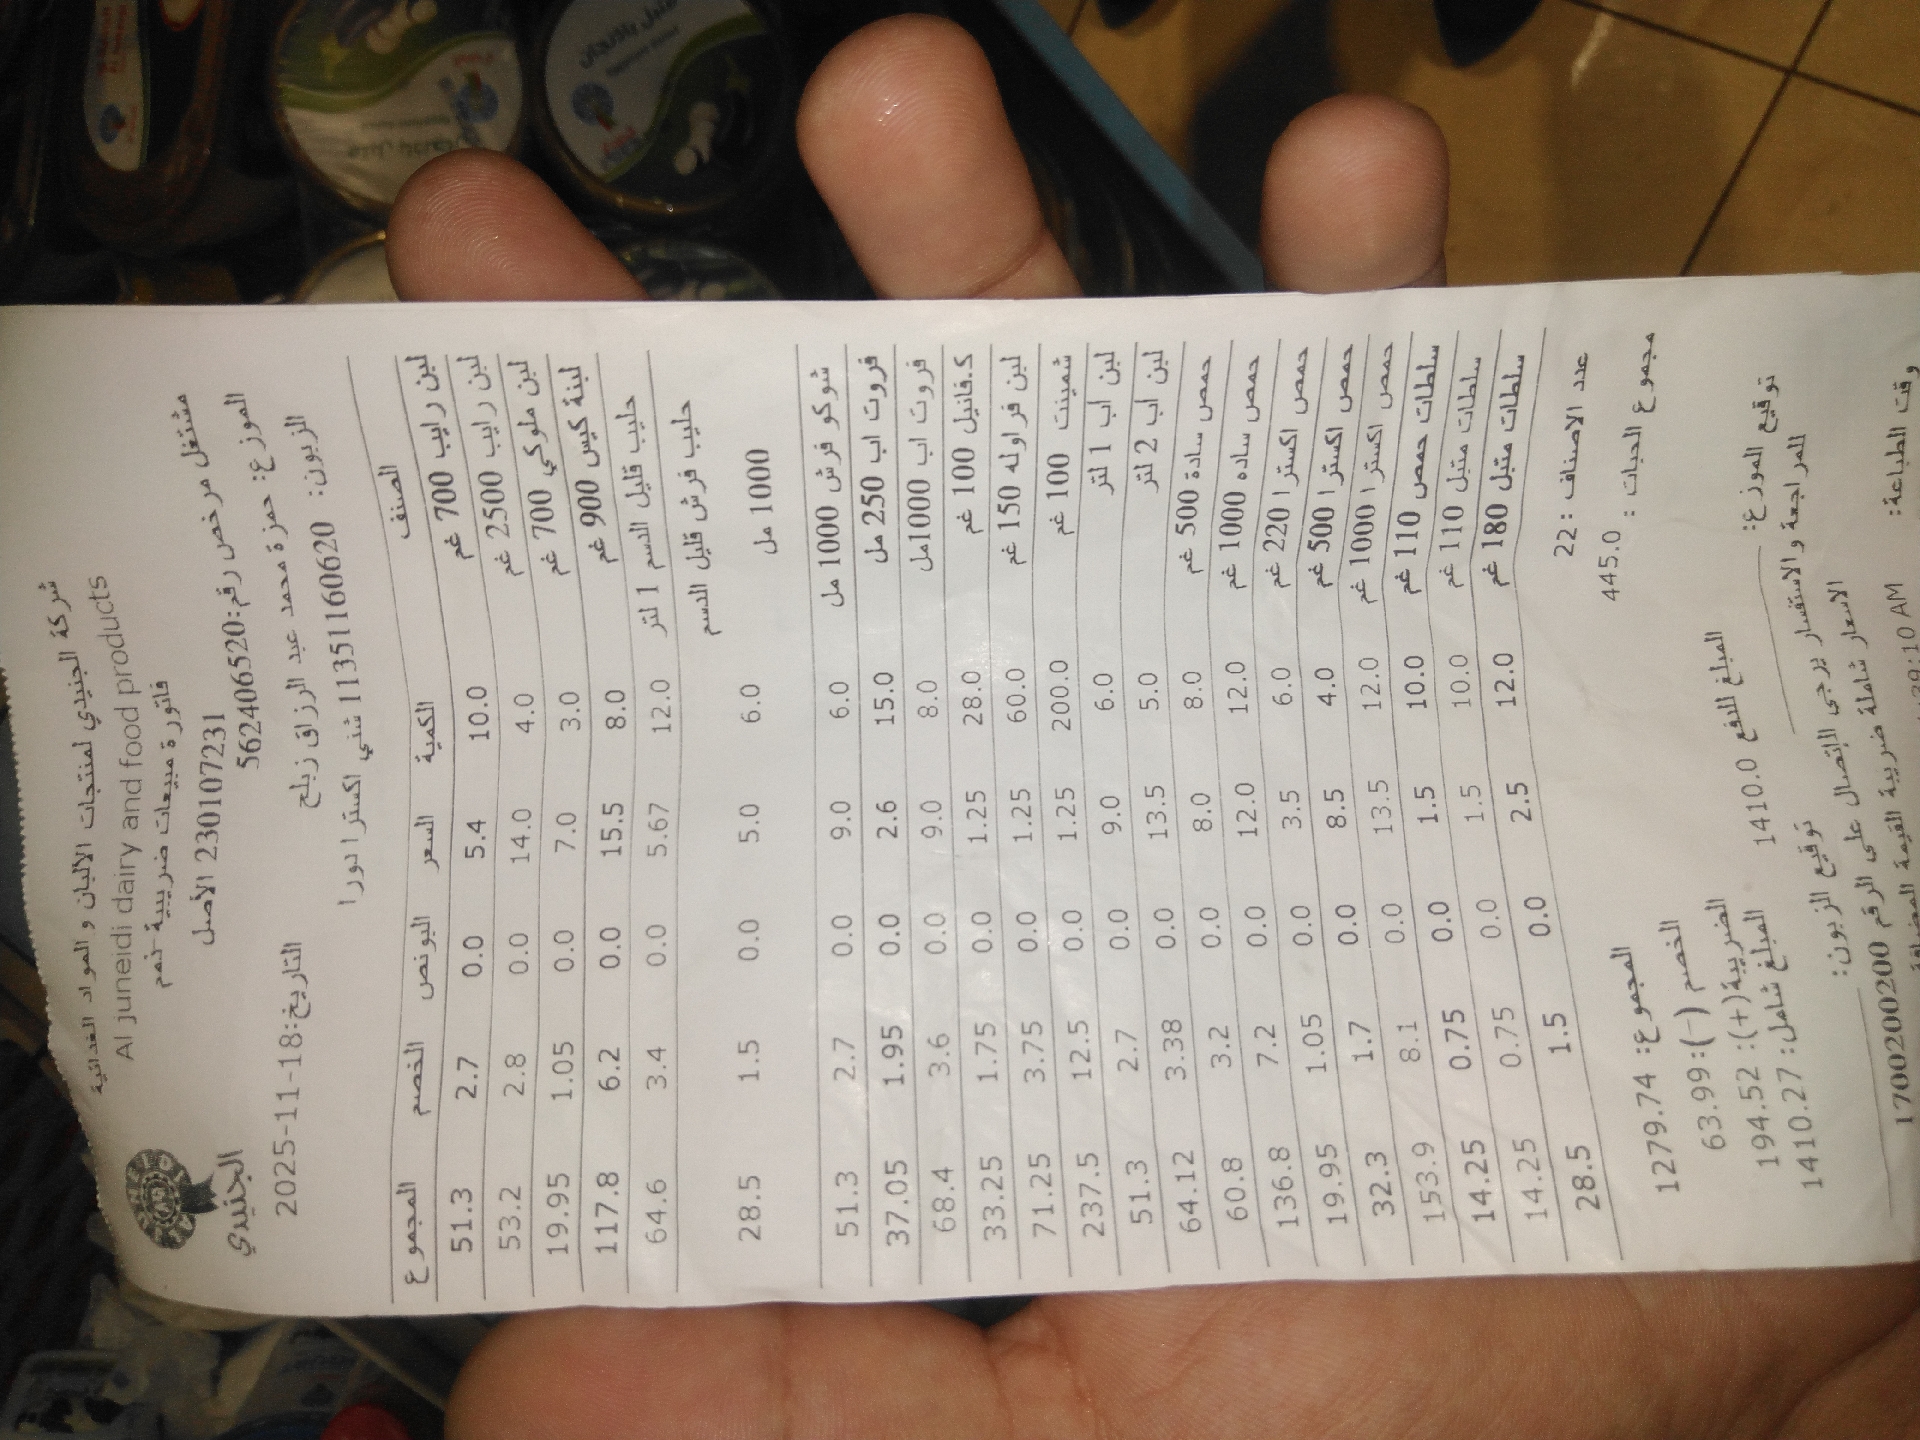 شركة الجنيدي لمنتجات الالبان و المواد الغذائية
Al juneidi dairy and food products
فاتورة مبيعات ضريبية نعم
230107231 الأصل
مشتغل مرخص رقم:562406520
الجنيدي
الموزع: حمزة محمد عبد الرزاق زبلح
التاريخ:2025-11-18
الزبون: 1135116062O شني اكسترا دورا
الصنف الكمية السعر البونص الخصم المجموع
لبن رايب 700 غم 10.0 5.4 0.0 2.7 51.3
لبن رايب 2500 غم 4.0 14.0 0.0 2.8 53.2
لبن ملوكي 700 غم 3.0 7.0 0.0 1.05 19.95
لبنة كيس 900 غم 8.0 15.5 0.0 6.2 117.8
حليب قليل الدسم 1 لتر 12.0 5.67 0.0 3.4 64.6
حليب فرش قليل الدسم
1000 مل 6.0 5.0 0.0 1.5 28.5
شوكو فرش 1000 مل 6.0 9.0 0.0 2.7 51.3
فروت اب 250 مل 15.0 2.6 0.0 1.95 37.05
فروت اب 1000مل 8.0 9.0 0.0 3.6 68.4
ك.فانيل 100 غم 28.0 1.25 0.0 1.75 33.25
لبن فراوله 150 غم 60.0 1.25 0.0 3.75 71.25
شمينت 100 غم 200.0 1.25 0.0 12.5 237.5
لبن اب 1 لتر 6.0 9.0 0.0 2.7 51.3
لبن اب 2 لتر 5.0 13.5 0.0 3.38 64.12
حمص سادة 500 غم 8.0 8.0 0.0 3.2 60.8
حمص ساده 1000 غم 12.0 12.0 0.0 7.2 136.8
حمص اكسترا 220 غم 6.0 3.5 0.0 1.05 19.95
حمص اكسترا 500 غم 4.0 8.5 0.0 1.7 32.3
حمص اكسترا 1000 غم 12.0 13.5 0.0 8.1 153.9
سلطات حمص 110 غم 10.0 1.5 0.0 0.75 14.25
سلطات متبل 110 غم 10.0 1.5 0.0 0.75 14.25
سلطات متبل 180 غم 12.0 2.5 0.0 1.5 28.5
عدد الاصناف :22
مجموع الحبات : 445.0
المجموع: 1279.74
الخصم (-):63.99
الضريبة(+): 194.52
المبلغ شامل: 1410.27
المبلغ للدفع 1410.0
توقيع الموزع:
توقيع الزبون:
للمراجعة والاستفسار يرجى الإتصال على الرقم 1700200200
الاسعار شاملة ضريبة القيمة المضافة
وقت الطباعة: 39:10 AM
متبل باذنجان